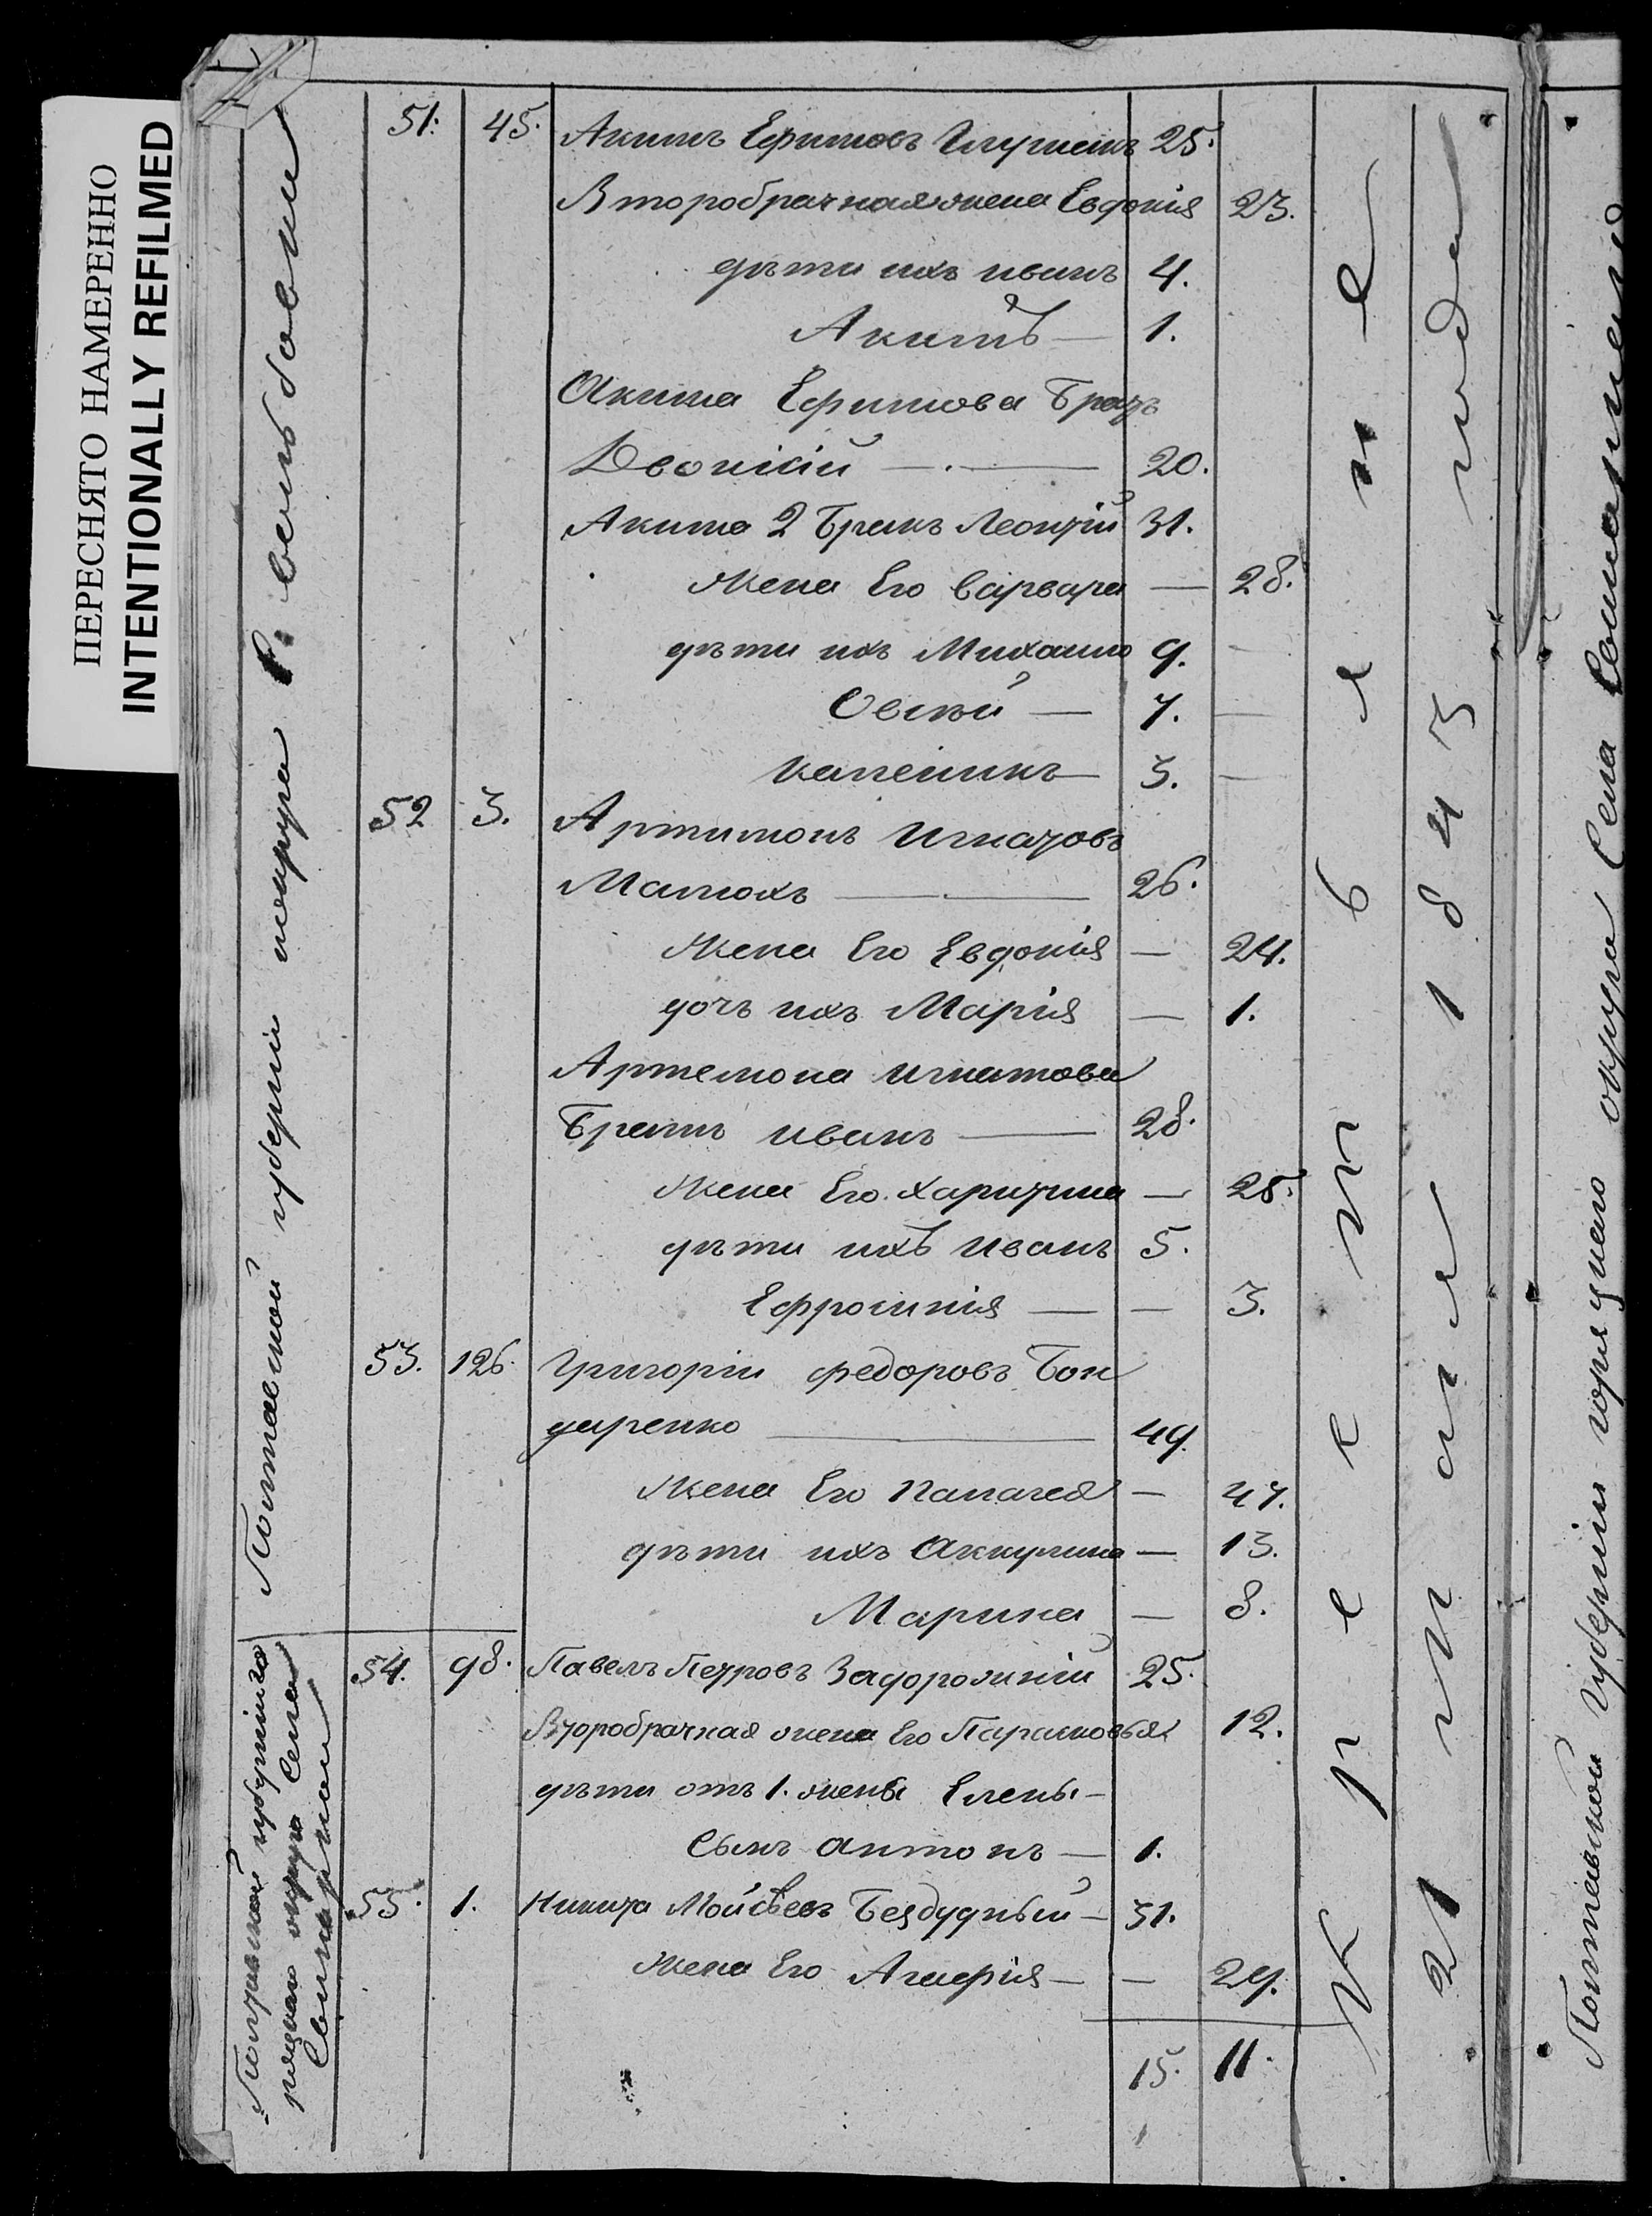 ПЕРЕСНЯТО НАМЕРЕННО
INTENTIONALLY REFILMED
Полтавской губерніи
51. 45. Акимъ Ефимовъ 25.
Второбрачная жена Евдокія 23.
дѣти ихъ иванъ 4.
Акимъ — 1.
Акима Ефимова Братъ
20.
Акима 2 Братъ Леонтій 31.
Жена Его Варвара — 28.
дѣти ихъ Михаило 9. -
Овсѣй — 7. —
3. —
52 3. Артимонъ игнатовъ
Матюхъ — 26.
Жена Его Евдокія — 24.
дочь ихъ Марія — 1.
Артемона игнатова
Братъ иванъ — 28.
Жена Его Харитина — 25.
дѣти ихъ иванъ 5.
Ефросинія — — 3.
53. 126. Григоріи федоровъ Бон
даренко — 49.
Жена Его Палагея — 47.
дѣти ихъ Аккулина — 13.
Марина — 8.
Полтавской
54. 98. Павелъ Петровъ Задорожній 25.
Второбрачная жена Его Парасковья 12.
дѣти отъ 1. жены Елены —
Сынъ антонъ — 1.
55. 1. Никита Мойсѣевъ Бездудный — 31.
Жена Его Агафія — — 29.
15. 11.
Крестьяне
21 1843 года
Полтавской Губерніи округа Села